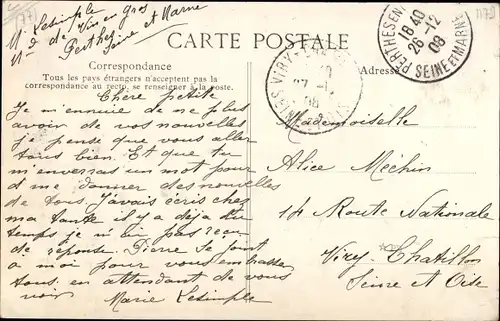 Mr Lesimple
Md de Vins en gros
Perthes
Seine et Marne
CARTE POSTALE
Correspondance
Tous les pays étrangers n'acceptent pas la
correspondance au recto, se renseigner à la poste.
Adresse
PERTHES EN
18 40
26 -12
08
SEINE ET MARNE
VIRY
08
Chère petite
Je m'ennuie de ne plus
avoir de vos nouvelles
je pense que vous aller
tous bien. Et que tu
m'enverras un mot pour
me donner des nouvelles
de tous. J'avais écris chez
ma tante il y a déja du
temps je n'ai pas reçu
de réponse. Pierre se joint
a moi pour vous embrasser
tous. en attendant de vous
voir
Marie Lesimple
Mademoiselle
Alice Méchin
14 Route Nationale
Viry-Chatillon
Seine et Oise